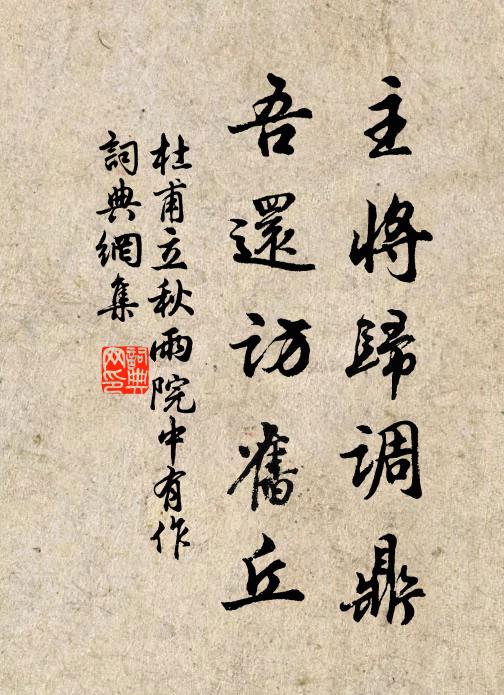 主將歸调鼎
吾還访舊丘
杜甫立秋雨院中有作
詞典網集
詞典
网印